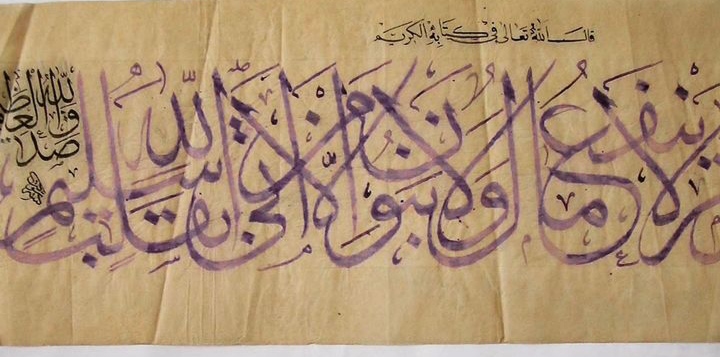 قال الله تعالى في كتابه الكريم
لا ينفع مال ولا بنون إلا من أتى الله بقلب سليم
صدق الله العظيم